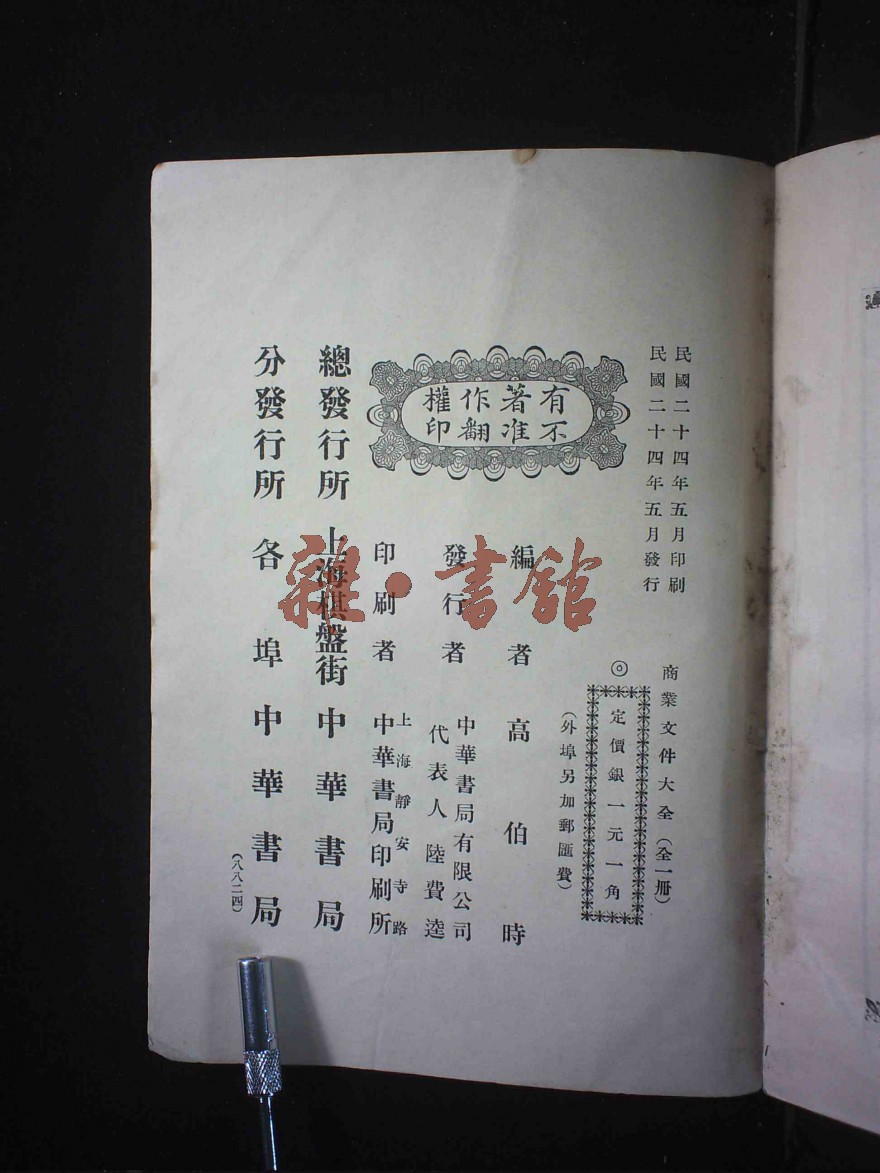 民國二十四年五月印刷
民國二十四年五月發行
有著作權
不准翻印
商業文件大全（全一冊）
◎定價銀一元一角
（外埠另加郵匯費）
編者高伯時
發行者
中華書局有限公司
代表人陸費逵
印刷者
上海靜安寺路
中華書局印刷所
總發行所 上海棋盤街 中華書局
分發行所 各埠中華書局
（八八二四）
雜·書館